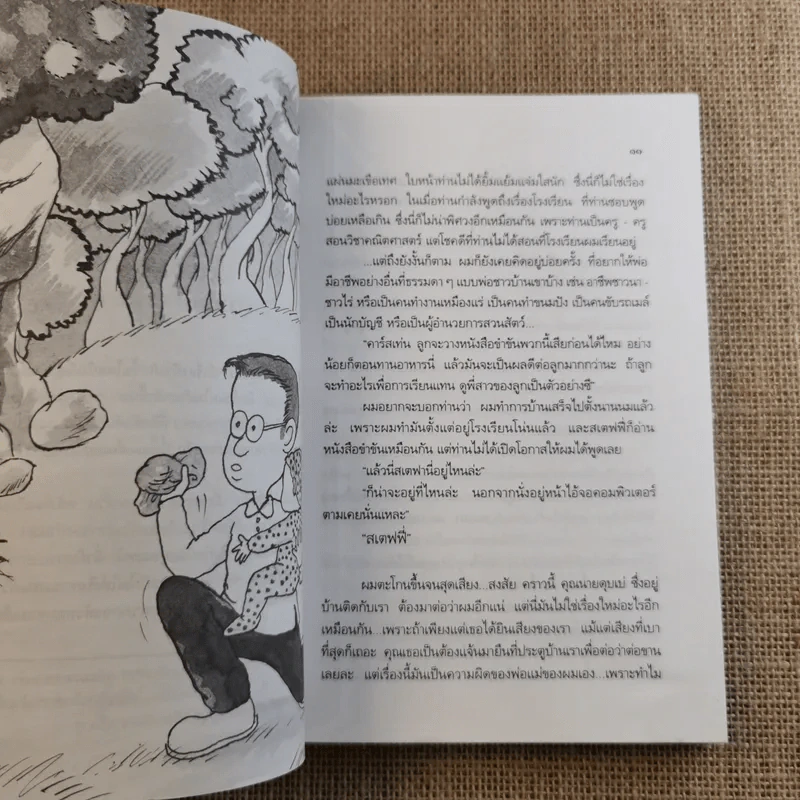 ๑๑
แผ่นมะเขือเทศ...ใบหน้าท่านไม่ได้ยิ้มแย้มแจ่มใสนัก ซึ่งนี่ก็ไม่ใช่เรื่อง
ใหม่อะไรหรอก ในเมื่อท่านกำลังพูดถึงเรื่องโรงเรียน ที่ท่านชอบพูด
บ่อยเหลือเกิน ซึ่งนี่ก็ไม่น่าพิศวงอีกเหมือนกัน เพราะท่านเป็นครู - ครู
สอนวิชาคณิตศาสตร์ แต่โชคดีที่ท่านไม่ได้สอนที่โรงเรียนผมเรียนอยู่
...แต่ถึงยังงั้นก็ตาม ผมก็ยังเคยคิดอยู่บ่อยครั้ง ที่อยากให้พ่อ
มีอาชีพอย่างอื่นที่ธรรมดา ๆ แบบพ่อชาวบ้านเขาบ้าง เช่น อาชีพชาวนา -
ชาวไร่ หรือเป็นคนทำงานเหมืองแร่ เป็นคนทำขนมปัง เป็นคนขับรถเมล์
เป็นนักบัญชี หรือเป็นผู้อำนวยการสวนสัตว์...
“คาร์สเท่น ลูกจะวางหนังสือขำขันพวกนี้เสียก่อนได้ไหม อย่าง
น้อยก็ตอนทานอาหารนี่ แล้วมันจะเป็นผลดีต่อลูกมากกว่านะ ถ้าลูก
จะทำอะไรเพื่อการเรียนแทน ดูพี่สาวของลูกเป็นตัวอย่างซี”
ผมอยากจะบอกท่านว่า ผมทำการบ้านเสร็จไปตั้งนานนมแล้ว
ล่ะ เพราะผมทำมันตั้งแต่อยู่โรงเรียนโน่นแล้ว และสเตฟฟี่ก็อ่าน
หนังสือขำขันเหมือนกัน แต่ท่านไม่ได้เปิดโอกาสให้ผมได้พูดเลย
“แล้วนี่สเตฟานี่อยู่ไหนล่ะ”
“ก็น่าจะอยู่ที่ไหนล่ะ นอกจากนั่งอยู่หน้าไอ้จอคอมพิวเตอร์
ตามเคยนั่นแหละ”
“สเตฟฟี่”
ผมตะโกนขึ้นจนสุดเสียง...สงสัย คราวนี้ คุณนายตุบเบ่ ซึ่งอยู่
บ้านติดกับเรา ต้องมาต่อว่าผมอีกแน่ แต่นี่มันไม่ใช่เรื่องใหม่อะไรอีก
เหมือนกัน...เพราะถ้าเพียงแต่เธอได้ยินเสียงของเรา แม้แต่เสียงที่เบา
ที่สุดก็เถอะ คุณเธอเป็นต้องแจ้นมายืนที่ประตูบ้านเราเพื่อต่อว่าต่อขาน
เลยละ แต่เรื่องนี้มันเป็นความผิดของพ่อแม่ของผมเอง...เพราะทำไม